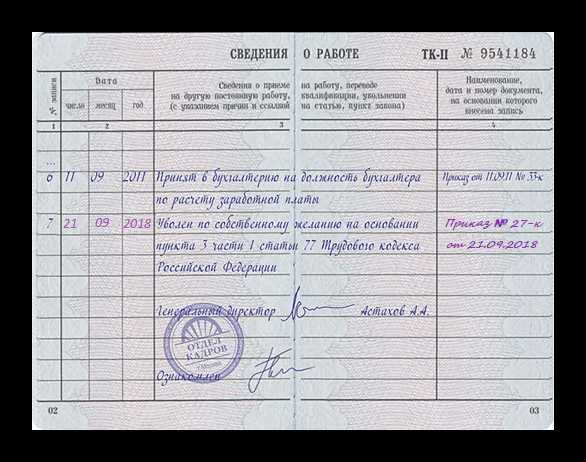 СВЕДЕНИЯ О РАБОТЕ ТК-II № 9541184
№ записи
Дата
число месяц год
Сведения о приеме на работу, переводе
на другую постоянную работу, квалификации, увольнении
(с указанием причин и ссылкой на статью, пункт закона)
Наименование,
дата и номер документа,
на основании которого
внесена запись
1 2 3 4
...
6 11 09 2011 Принят в бухгалтерию на должность бухгалтера Приказ от 11.09.11 № 33-к
по расчету заработной платы
7 21 09 2018 Уволен по собственному желанию на основании Приказ № 27-к
пункта 3 части 1 статьи 77 Трудового кодекса от 21.09.2018
Российской Федерации
Генеральный директор Астахов А.А.
ОТДЕЛ
КАДРОВ
г. Москва
Ознакомлен
02 03